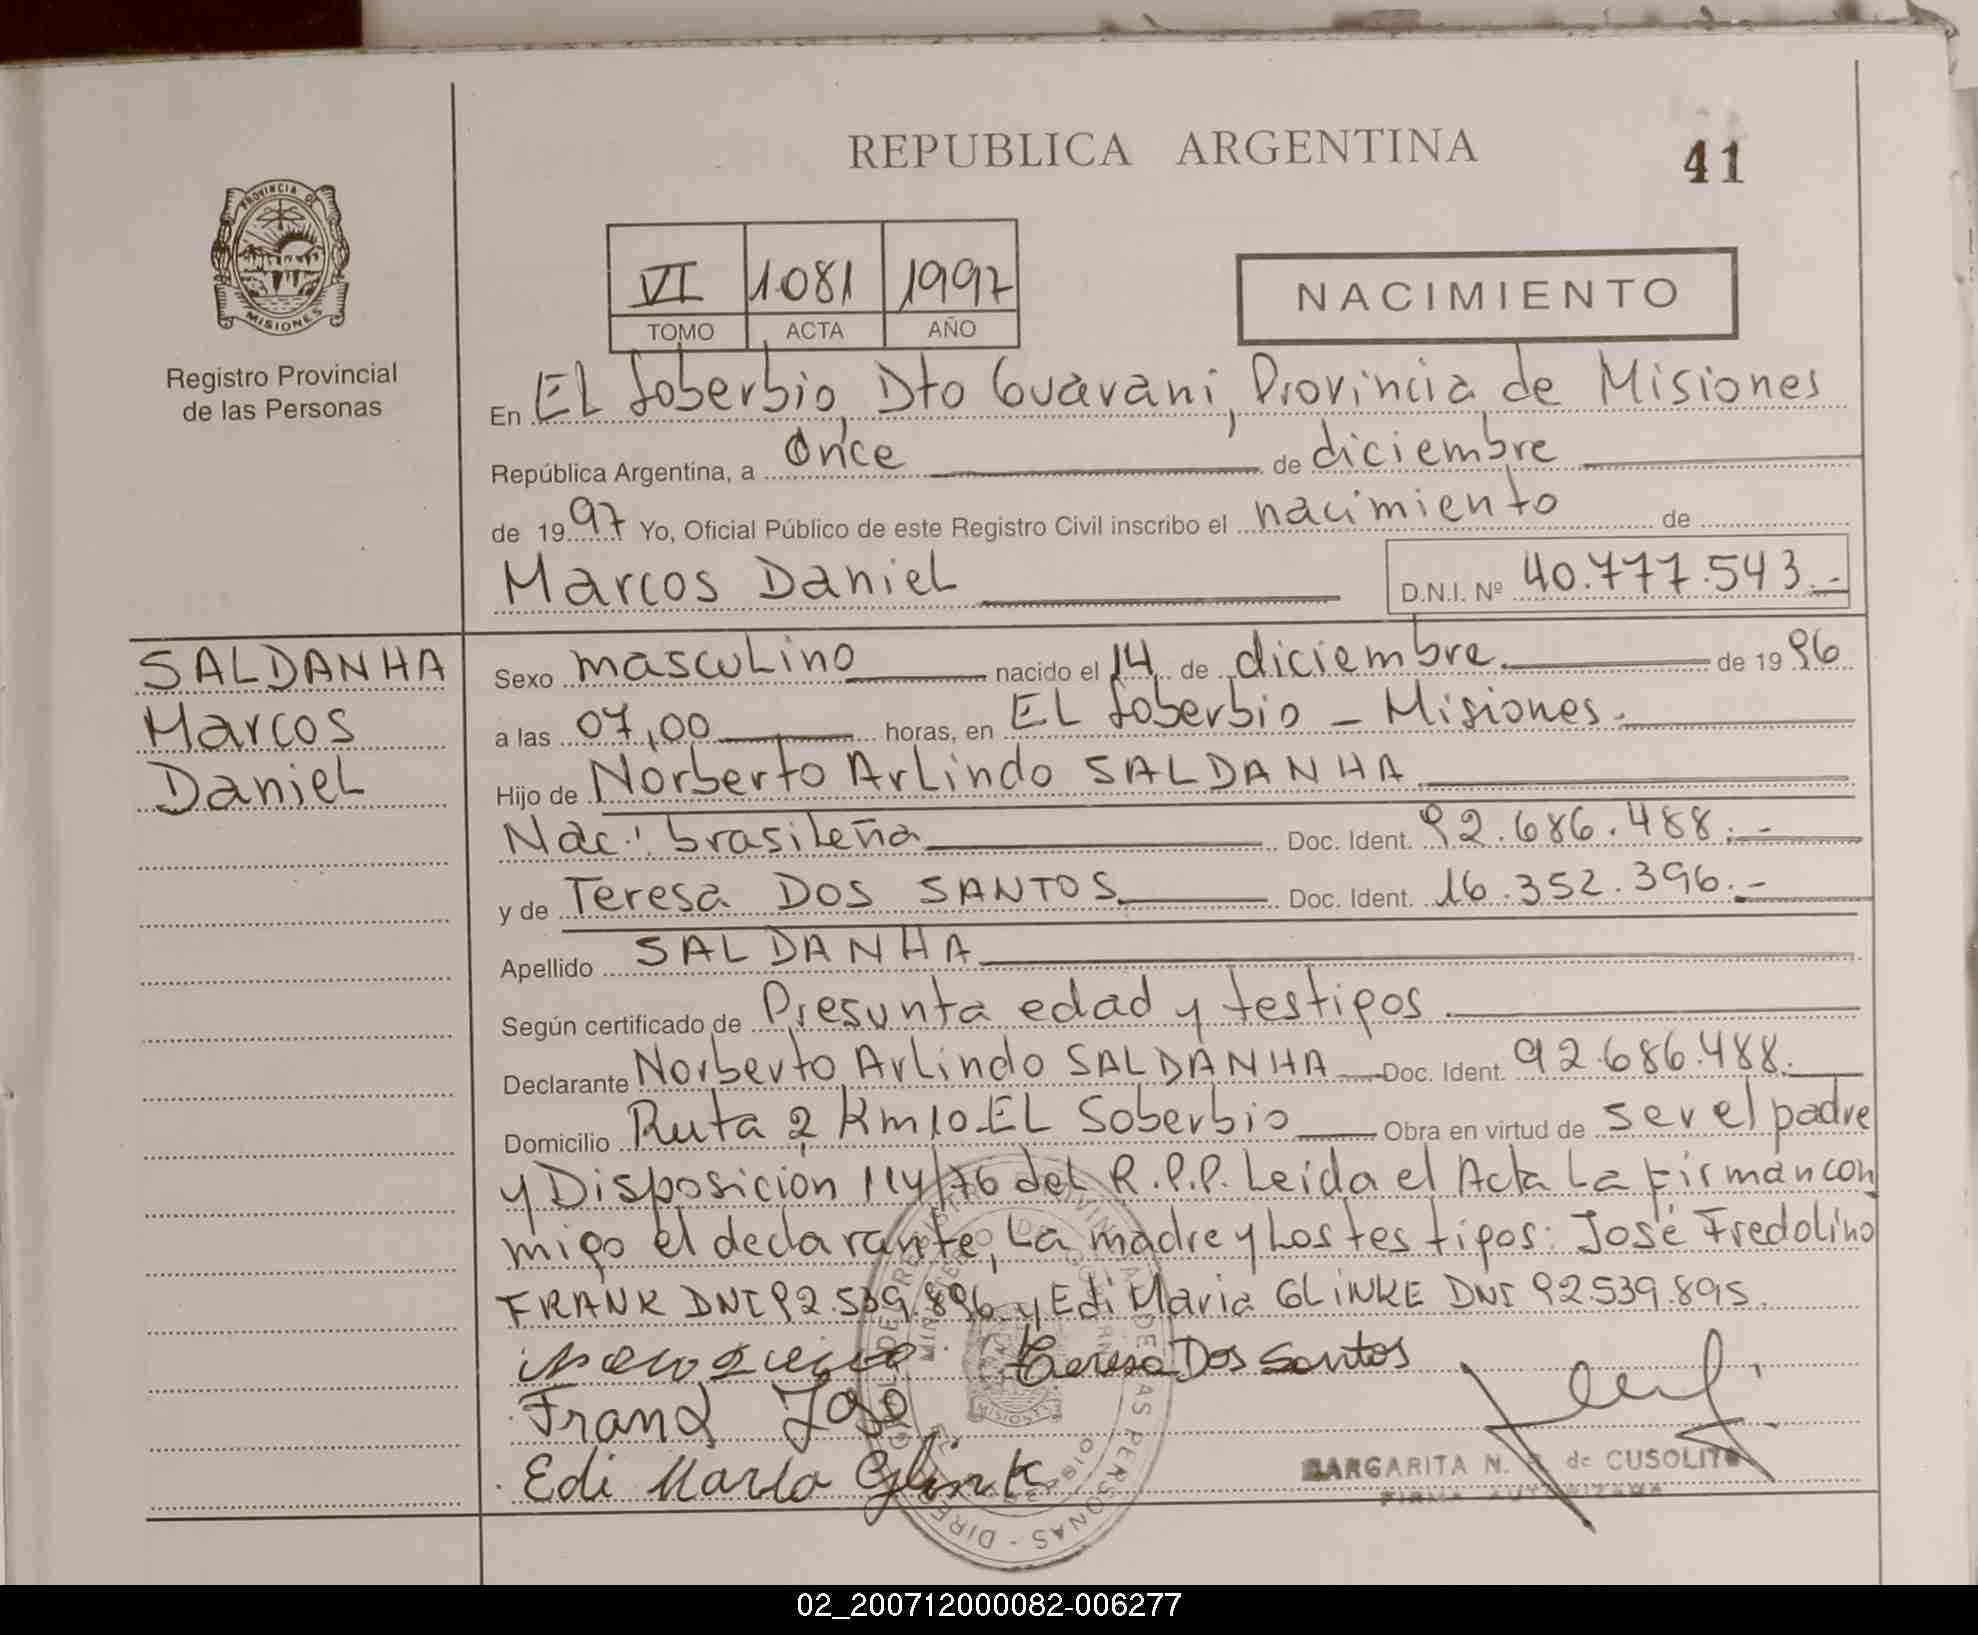 REPUBLICA ARGENTINA
41
PROVINCIA DE
MISIONES
Registro Provincial
de las Personas
VI 1081 1997
TOMO ACTA AÑO
NACIMIENTO
En EL Soberbio, Dto Guarani, Provincia de Misiones
República Argentina, a Once de diciembre
de 1997 Yo, Oficial Público de este Registro Civil inscribo el nacimiento de
Marcos Daniel D.N.I. Nº 40.777.543.-
SALDANHA
Marcos
Daniel
Sexo masculino nacido el 14 de diciembre de 1996
a las 07,00 horas, en EL Soberbio - Misiones.
Hijo de Norberto Arlindo SALDANHA
Nac: brasileña Doc. Ident. 92.686.488.-
y de Teresa DOS SANTOS Doc. Ident. 16.352.396.-
Apellido SALDANHA
Según certificado de Presunta edad y testigos
Declarante Norberto Arlindo SALDANHA Doc. Ident. 92.686.488.
Domicilio Ruta 2 Km 10 EL Soberbio Obra en virtud de ser el padre
y Disposición 114/76 del R.P.P. Leida el Acta La firman con
migo el declarante, La madre y Los testigos: José Fredolino
FRANK DNI 92.539.896 y Edi Maria GLINKE DNI 92.539.895.
Teresa Dos Santos
Frank Jose
Edi Marla Glink
MARGARITA N. de CUSOLITO
FIRMA AUTORIZADA
02_200712000082-006277